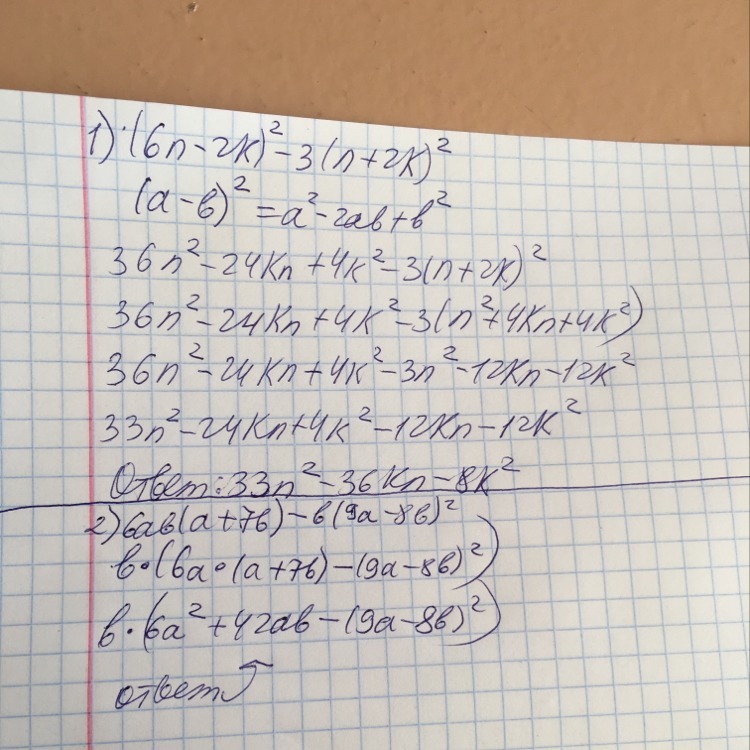 1) (6n-2k)²-3(n+2k)²
(a-в)²=a²-2aв+в²
36n²-24kn+4k²-3(n+2k)²
36n²-24kn+4k²-3(n²+4kn+4k²)
36n²-24kn+4k²-3n²-12kn-12k²
33n²-24kn+4k²-12kn-12k²
Ответ: 33n²-36kn-8k²
2) 6aв(a+7в)-в(9a-8в)²
в•(6a•(a+7в)-(9a-8в)²)
в•(6a²+42aв-(9a-8в)²)
ответ